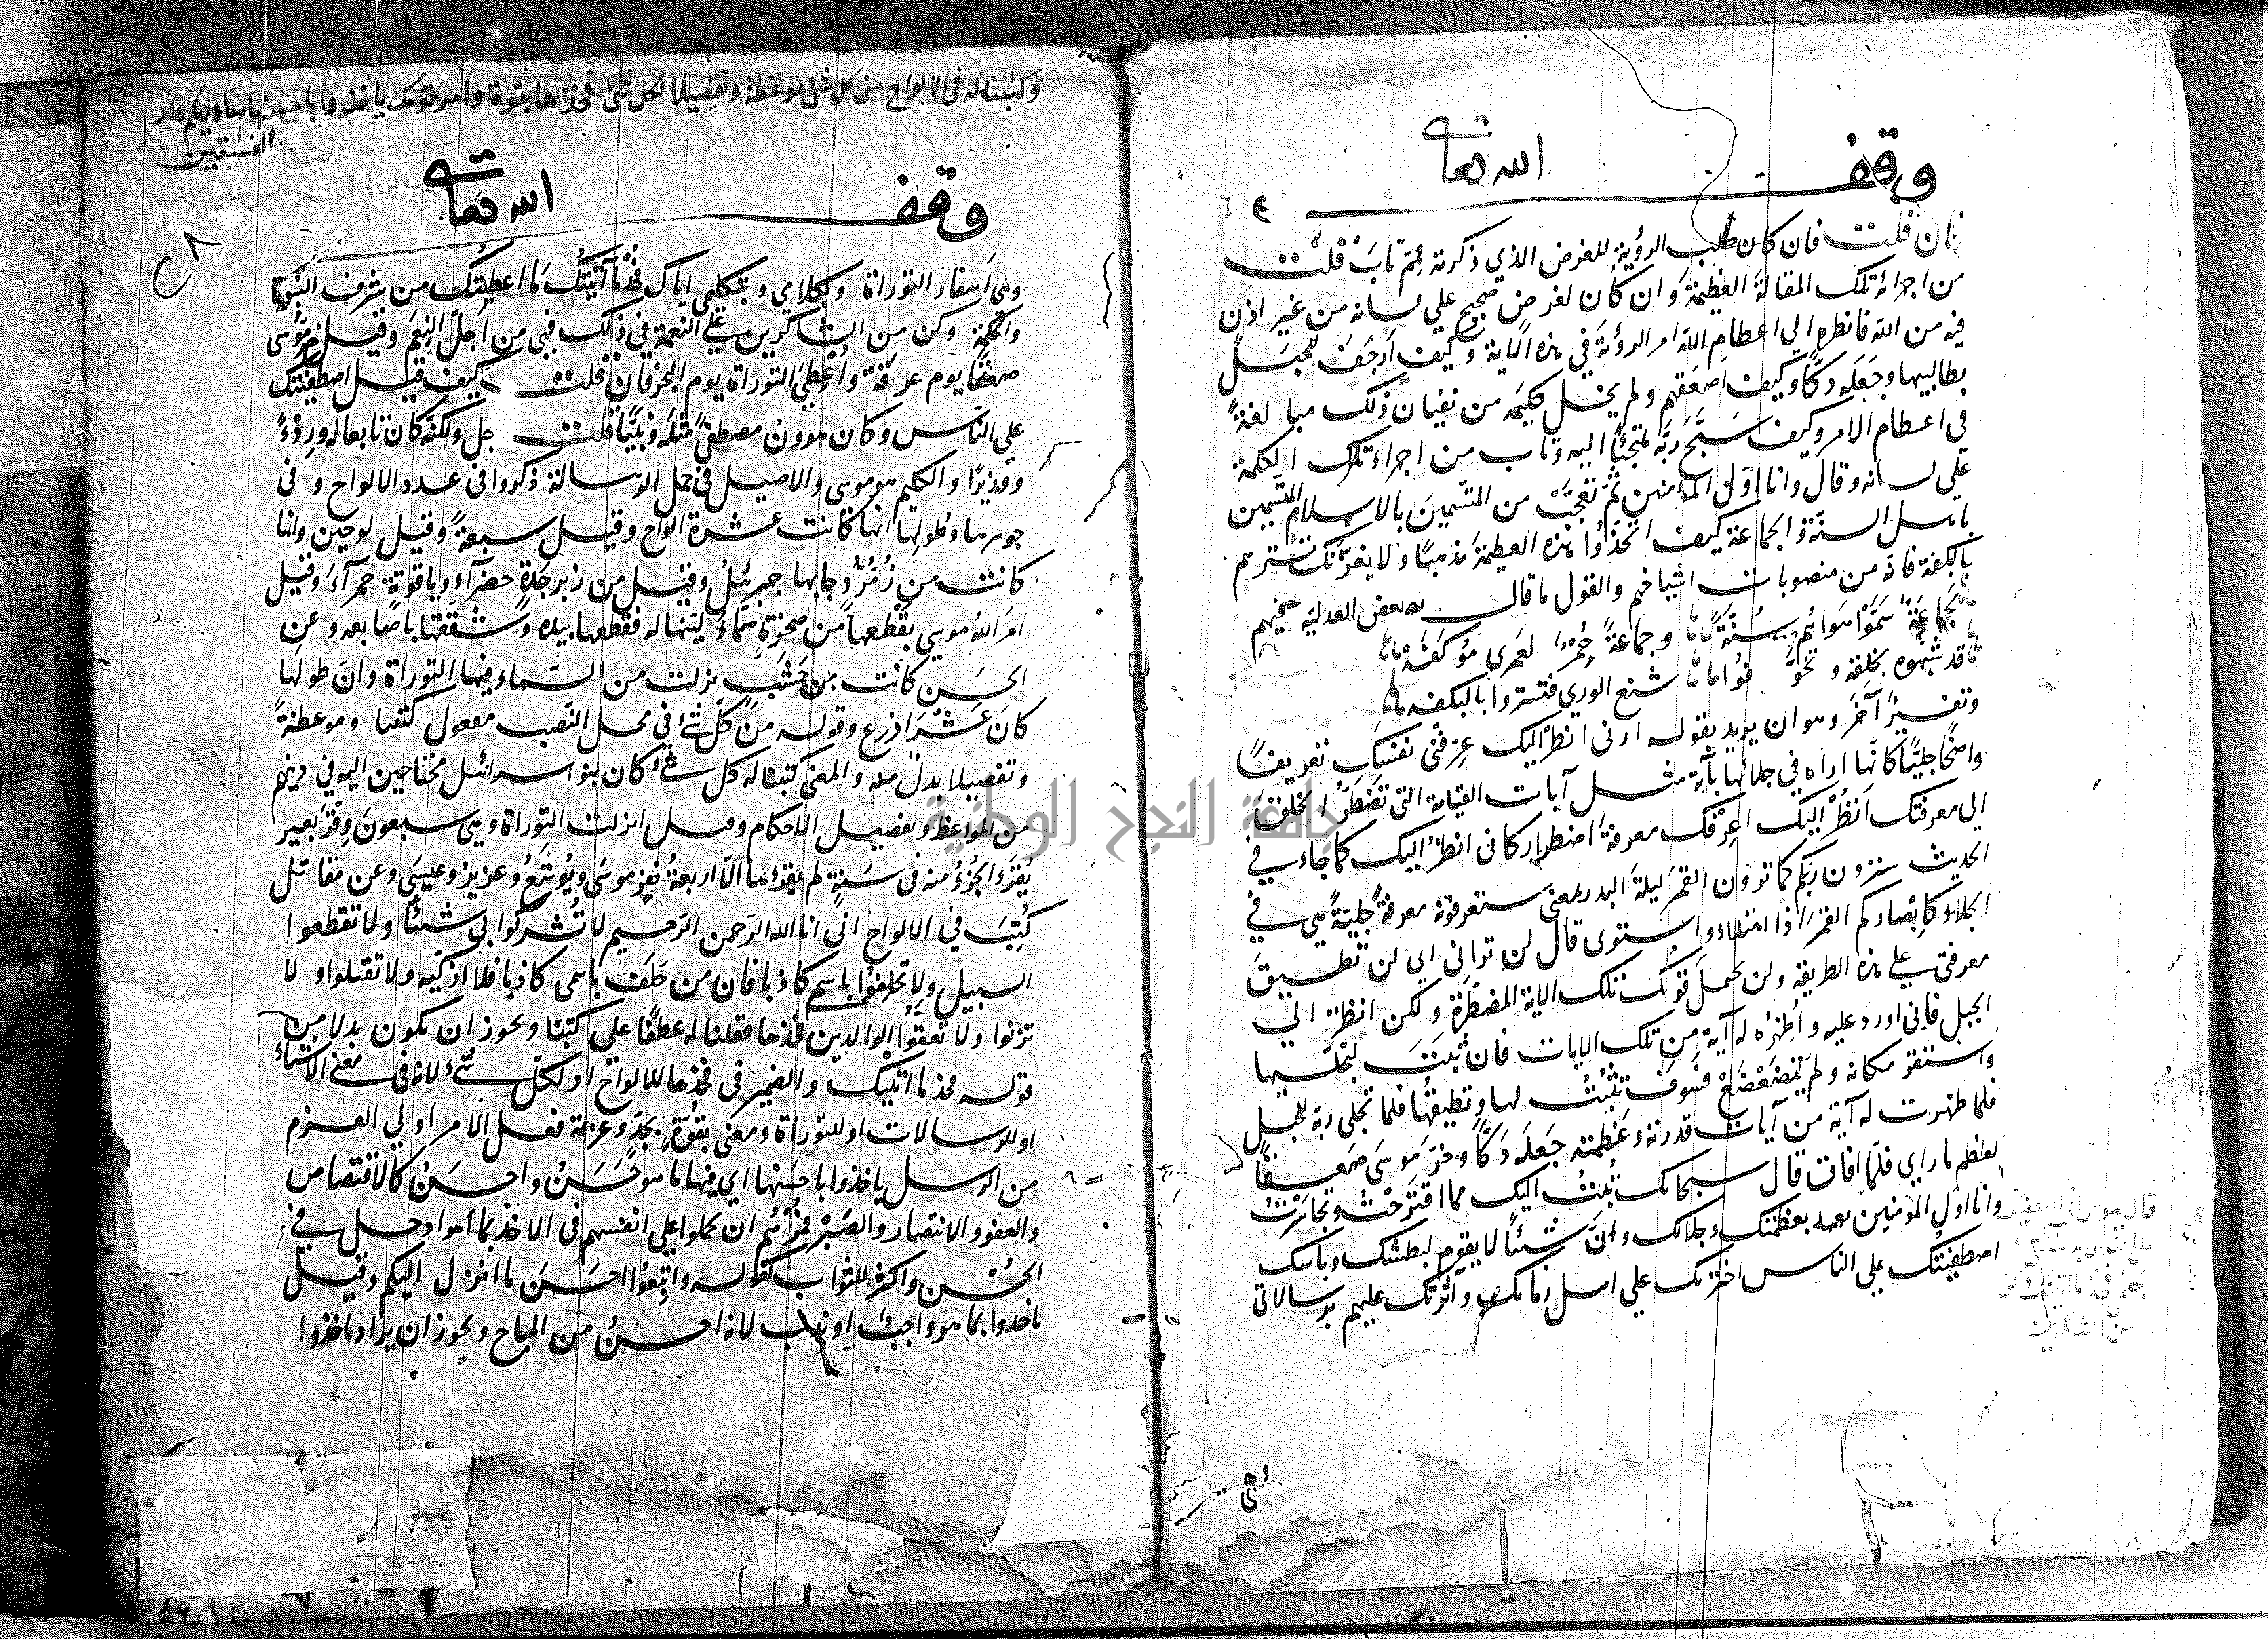 وقف الله تعالى
فان قلت فان كان طلب الرؤية للغرض الذي ذكرته فمم تاب قلت
من اجرائه تلك المقالة العظيمة وان كان لغرض صحيح على لسانه من غير اذن
فيه من الله فانظر الى اعظام الله امر الرؤية في هذه الآية وكيف ارجف الجبل
بطالبيها وجعله دكا وكيف اصعقهم ولم يخل كليمه من نفيان ذلك مبالغة
في اعظام الامر وكيف سبح ربه ملتجئا اليه وتاب من اجراء تلك الكلمة
على لسانه وقال وانا اول المؤمنين ثم تعجب من المتسمين بالاسلام المتسمين
باهل السنة والجماعة كيف اتخذوا هذه العظيمة مذهبا ولا يغرنك تسترهم
بالبلكفة فانه من منصوبات اشياخهم والقول ما قال بعض العدلية فيهم
لجماعة سموا هواهم سنة وجماعة حمر لعمري موكفه
قد شبهوه بخلقه وتخوفوا شنع الورى فتستروا بالبلكفه
وتفسير آخر وهو ان يريد بقوله ارنى انظر اليك عرفنى نفسك تعريفا
واضحا جليا كانها اراه في جلائها بآية مثل آيات القيامة التى تضطر الخلق
الى معرفتك انظر اليك اعرفك معرفة اضطرار كانى انظر اليك كما جاء في
الحديث سترون ربكم كما ترون القمر ليلة البدر بمعنى ستعرفونه معرفة جلية هي في
الجلاء كابصاركم القمر اذا امتلاء واستوى قال لن ترانى اى لن تطيق
معرفتى على هذه الطريقة ولن يحتمل قوتك تلك الآية المضطرة ولكن انظر الى
الجبل فانى اورد عليه واظهره له آية من تلك الآيات فان ثبت لتجليها
واستقر مكانه ولم يتضعضع فسوف تثبت لها وتطيقها فلما تجلى ربه للجبل
فلما ظهرت له آية من آيات قدرته وعظمته جعله دكا وخر موسى صعقا
لعظم ما راى فلما افاق قال سبحانك تبت اليك مما اقترحت وتجاسرت
وانا اول المؤمنين بعظمتك وجلالك وان شيئا لا يقوم لبطشك وباسك
اصطفيتك على الناس اخترتك على اهل زمانك وآثرتك عليهم برسالاتى
وكتبنا له فى الالواح من كل شئ موعظة وتفصيلا لكل شئ فخذها بقوة وامر قومك ياخذوا باحسنها ساوريكم دار
الفسقين
وقف الله تعالى
٢٨
وهى اسفار التوراة وبكلامي وبتكليمى اياك فخذ ما آتيتك ما اعطيتك من شرف النبوة
والحكمة وكن من الشاكرين على النعمة في ذلك فهي من اجل النعم وقيل خر موسى
صعقا يوم عرفة واعطى التوراة يوم النحر فان قلت كيف قيل اصطفيتك
على الناس وكان هرون مصطفى مثله ونبيا قلت اجل ولكنه كان تابعا له وردءا
ووزيرا والكليم هو موسى والاصيل في حمل الرسالة ذكروا في عدد الالواح وفى
جوهرها وطولها انها كانت عشرة الواح وقيل سبعة وقيل لوحين وانها
كانت من زمرد جابها جبرئيل وقيل من زبرجدة خضرآء وياقوتة حمرآء وقيل
امر الله موسى بقطعها من صخرة صماء لينها له فقطعها بيده وشققها باصابعه وعن
الحسن كانت من خشب نزلت من السماء فيها التوراة وان طولها
كان عشر اذرع وقوله من كل شئ في محل النصب مفعول كتبنا وموعظة
وتفصيلا بدل منه والمعنى كتبنا له كل شئ كان بنو اسرائيل محتاجين اليه في دينهم
من المواعظ وتفصيل الاحكام وقيل انزلت التوراة وهي سبعون وقر بعير
يقرؤ الجزء منه في سنة لم يقرءها الا اربعة نفر موسى ويوشع وعزير وعيسى وعن مقاتل
كتب في الالواح انى انا الله الرحمن الرحيم لا تشركوا بى شيئا ولا تقطعوا
السبيل ولا تحلفوا باسمى كاذبا فان من حلف باسمى كاذبا فلا ازكيه ولا تقتلوا ولا
تزنوا ولا تعقوا الوالدين فخذها فقلنا له عطفا على كتبنا ويجوز ان يكون بدلا من
قوله فخذ ما اتيتك والضمير فى فخذها للالواح او لكل شئ لانه فى معنى الاشياء
او للرسالات او للتوراة ومعنى بقوة بجد وعزيمة فعل الامر اولي العزم
من الرسل ياخذوا باحسنها اي فيها ما هو حسن واحسن كالاقتصاص
والعفو والانتصار والصبر فمرهم ان يحملوا على انفسهم فى الاخذ بما هو ادخل في
الحسن واكثر للثواب كقوله واتبعوا احسن ما انزل اليكم وقيل
ياخدوا بما هو واجب او ندب لانه احسن من المباح ويجوز ان يراد ياخذوا
جامعة النجاح الوطنية